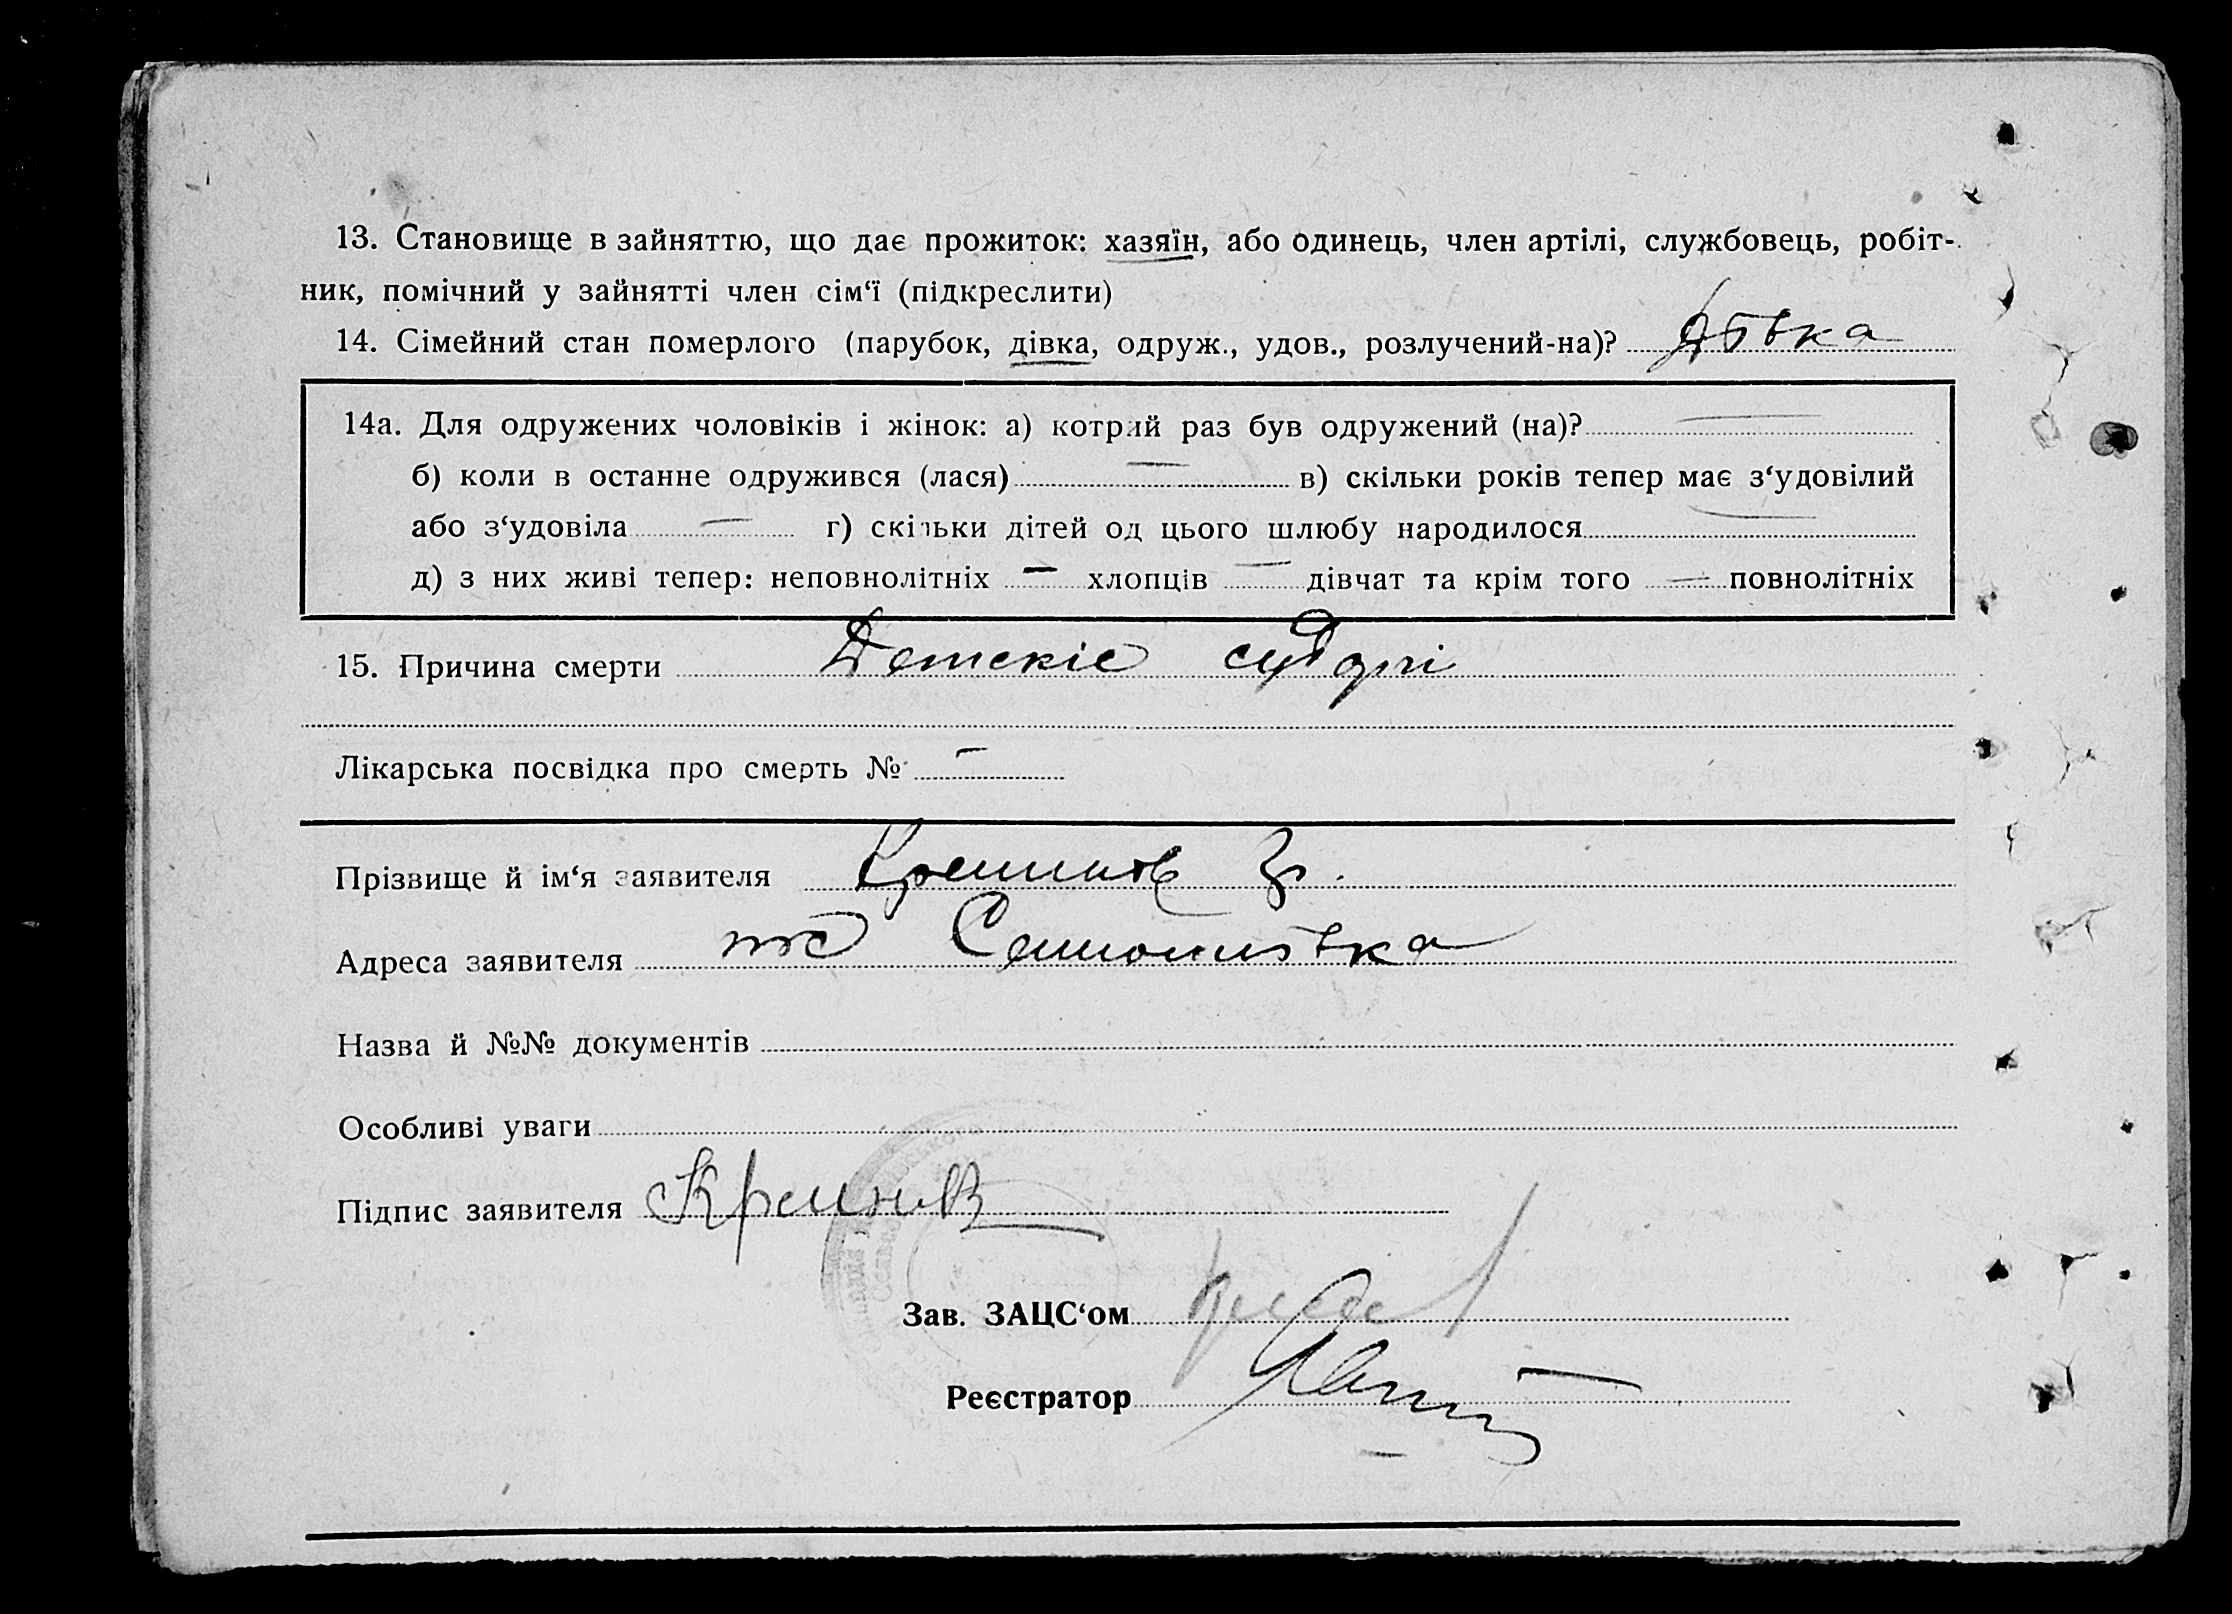 13. Становище в зайняттю, що дає прожиток: хазяїн, або одинець, член артілі, службовець, робіт-
ник, помічний у зайнятті член сім‘ї (підкреслити)
14. Сімейний стан померлого (парубок, дівка, одруж., удов., розлучений-на)? Дівка
14а. Для одружених чоловіків і жінок: а) котрий раз був одружений (на)? —
б) коли в останне одружився (лася) — в) скільки років тепер має з‘удовілий
або з‘удовіла — г) скільки дітей од цього шлюбу народилося —
д) з них живі тепер: неповнолітніх — хлопців — дівчат та крім того — повнолітніх
15. Причина смерти Детскіе судоргі
Лікарська посвідка про смерть № —
Прізвище й ім‘я заявителя
Адреса заявителя
Назва й №№ документів
Особливі уваги
Підпис заявителя
Зав. ЗАЦС‘ом
Реєстратор